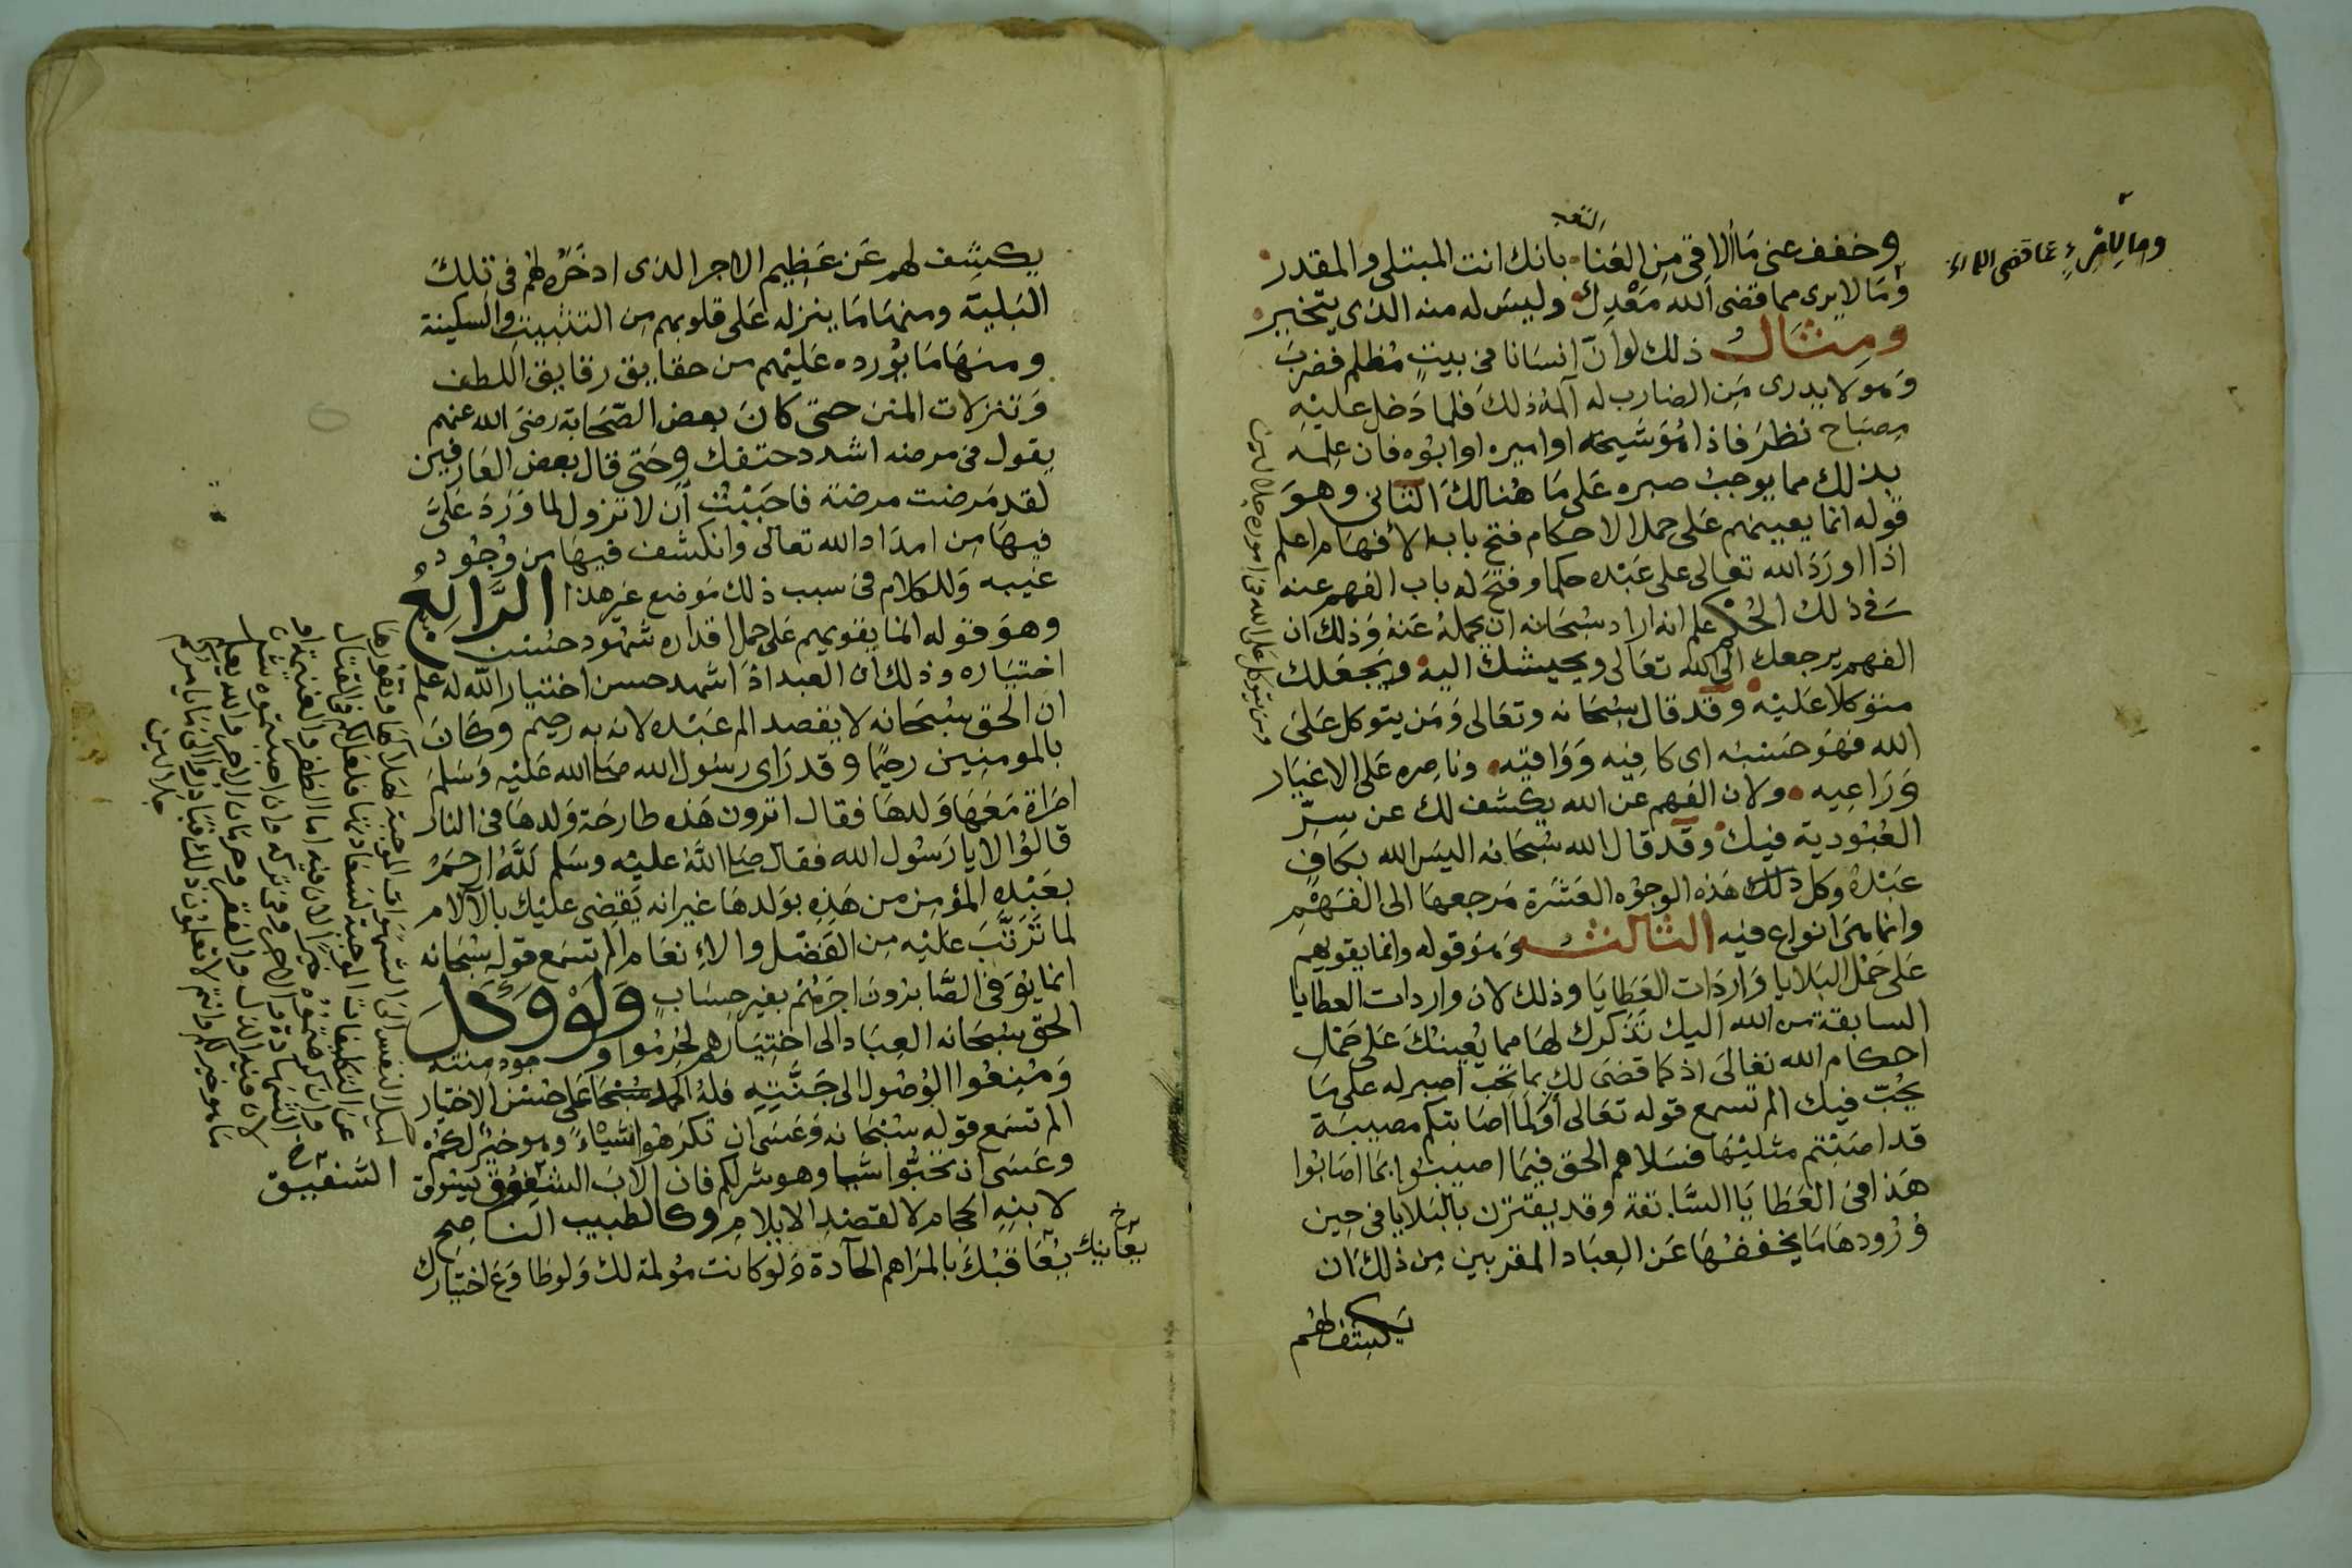 وخفف عنى ما الاقى من العنا بانك انت المبتلى والمقدر
وما لامرئ عما قضى الله
وما لايرى مما قضى الله معدل وليس له منه الذى يتخير
ومثال ذلك لو ان انسانا فى بيت مظلم فضرب
وهو لا يدرى من الضارب له آلمه ذلك فلما دخل عليه
مصباح نظر فاذا هو شيخه او اميره او ابوه فان علمه
بذلك مما يوجب صبره على ما هنالك الثانى وهو
قوله انما يعينهم على حمل الاحكام فتح باب الأفهام اعلم
اذا اورد الله تعالى على عبده حكما وفتح له باب الفهم عنه
فى ذلك الحكم علم انه اراد سبحانه ان يحمله عنه وذلك ان
الفهم يرجعك الى الله تعالى ويحيشك اليه ويجعلك
متوكلا عليه وقد قال سبحانه وتعالى ومن يتوكل على
الله فهو حسبه اى كافيه وواقيه وناصره على الاغيار
وراعيه ولان الفهم عن الله يكشف لك عن سر
العبودية فيك وقد قال الله سبحانه اليس الله بكاف
عبده وكل ذلك هذه الوجوه العشرة مرجعها الى الفهم
وانما هى انواع فيه الثالث وهو قوله وانما يقويهم
على حمل البلايا واردات العطايا وذلك لان واردات العطايا
السابقة من الله اليك تذكرك لها مما يعينك على حمل
احكام الله تعالى اذ كما قضى لك بما تحب اصبر له على ما
يحب فيك الم تسمع قوله تعالى أولما اصابتكم مصيبة
قد اصبتم مثليها فسلاهم الحق فيما اصيبوا بما اصابوا
هذا فى العطايا السابقة وقد يقترن بالبلايا فى حين
ورودها ما يخففها عن العباد المقربين من ذلك ان
يكشف لهم
ومن يتوكل على الله فى اموره جلالين
يكشف لهم عن عظيم الاجر الذى ادخره لهم فى تلك
البلية ومنها ما ينزله على قلوبهم من التثبيت والسكينة
ومنها ما يورده عليهم من حقايق رقايق اللطف
وتنزلات المنن حتى كان بعض الصحابة رضى الله عنهم
يقول فى مرضه اشدد حتفك وحتى قال بعض العارفين
لقد مرضت مرضة فاحببت أن لا تزول لما ورد على
فيها من امداد الله تعالى وانكشف فيها من وجود
غيبه وللكلام فى سبب ذلك موضع غير هذا الرابع
وهو قوله انما يقويهم على حمل اقداره شهود حسن
اختياره وذلك ان العبد اذا شهد حسن اختيار الله له علم
ان الحق سبحانه لا يقصد الم عبده لانه به رحيم وكان
بالمومنين رحيما وقد راى رسول الله صلى الله عليه وسلم
امراة معها ولدها فقال اترون هذه طارحة ولدها فى النار
قالوا لا يا رسول الله فقال صلى الله عليه وسلم لله ارحم
بعبده المؤمن من هذه بولدها غير انه يقضى عليك بالآلام
لما ترتب عليه من الفضل والانعام الم تسمع قوله سبحانه
انما يوفى الصابرون اجرهم بغير حساب ولو وكل
الحق سبحانه العباد الى اختيارهم لحرموا وجود منته
ومنعوا الوصول الى جنته فله الحمد سبحانه على حسن الاختيار
الم تسمع قوله سبحانه وعسى ان تكرهوا شيئا وهو خير لكم
وعسى ان تحبوا شيا وهو شر لكم فان الاب الشفوق يسوق
الشفيق
لابنه الحجام لا لقصد الايلام وكالطبيب الناصح
يعانيك
يعاقبك بالمراهم الحادة ولو كانت مولمة لك ولو طاوع اختيارك
لميل النفس الى الشهوات الموجبة لهلاكها ونفورها
عن التكليفات الموجبة لسعادتها فلعل لكم فى القتال
وان كرهتموه خيرا لان فيه اما الظفر والغنيمة او
الشهادة والاجر وفى تركه وان احببتموه شرا
لان فيه الذل والفقر وحرمان الاجر والله يعلم
ما هو خير لكم وانتم لا تعلمون ذلك فبادروا الى ما يامركم به
جلالين